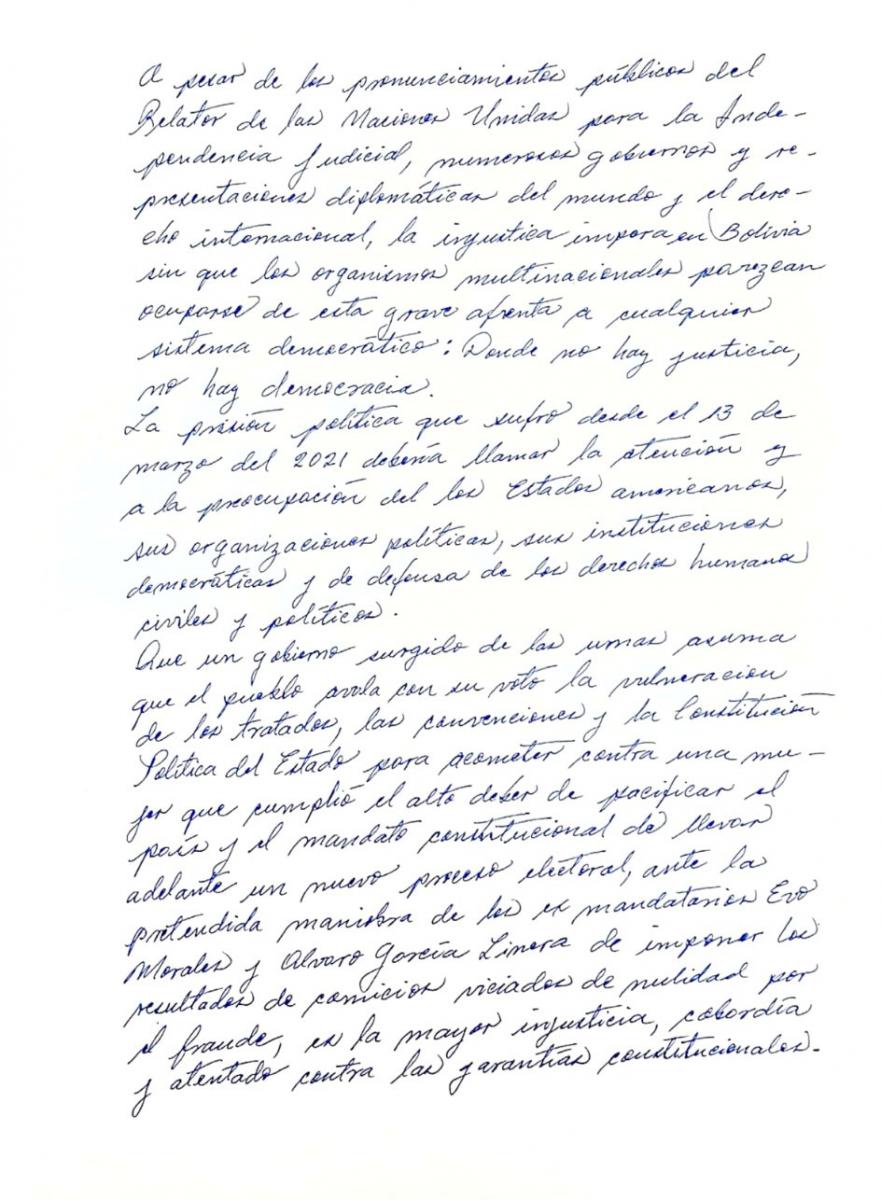 A pesar de los pronunciamientos públicos del
Relator de las Naciones Unidas para la Inde-
pendencia Judicial, numerosos gobiernos y re-
presentaciones diplomáticas del mundo y el dere-
cho internacional, la injustica impera en Bolivia
sin que los organismos multinacionales parezcan
ocuparse de esta grave afrenta a cualquier
sistema democrático: Donde no hay justicia,
no hay democracia.
La prisión política que sufro desde el 13 de
marzo del 2021 debería llamar la atención y
a la preocupación del los Estados americanos,
sus organizaciones políticas, sus instituciones
democráticas y de defensa de los derechos humanos
civiles y políticos.
Que un gobierno surgido de las urnas asuma
que el pueblo avala con su voto la vulneracion
de los tratados, las convenciones y la Constitución
Política del Estado para acometer contra una mu-
jer que cumplió el alto deber de pacificar el
país y el mandato constitucional de llevar
adelante un nuevo proceso electoral, ante la
pretendida maniobra de los ex mandatarios Evo
Morales y Alvaro García Linera de imponer los
resultados de comicios viciados de nulidad por
el fraude, es la mayor injusticia, cobardía
y atentado contra las garantías constitucionales.